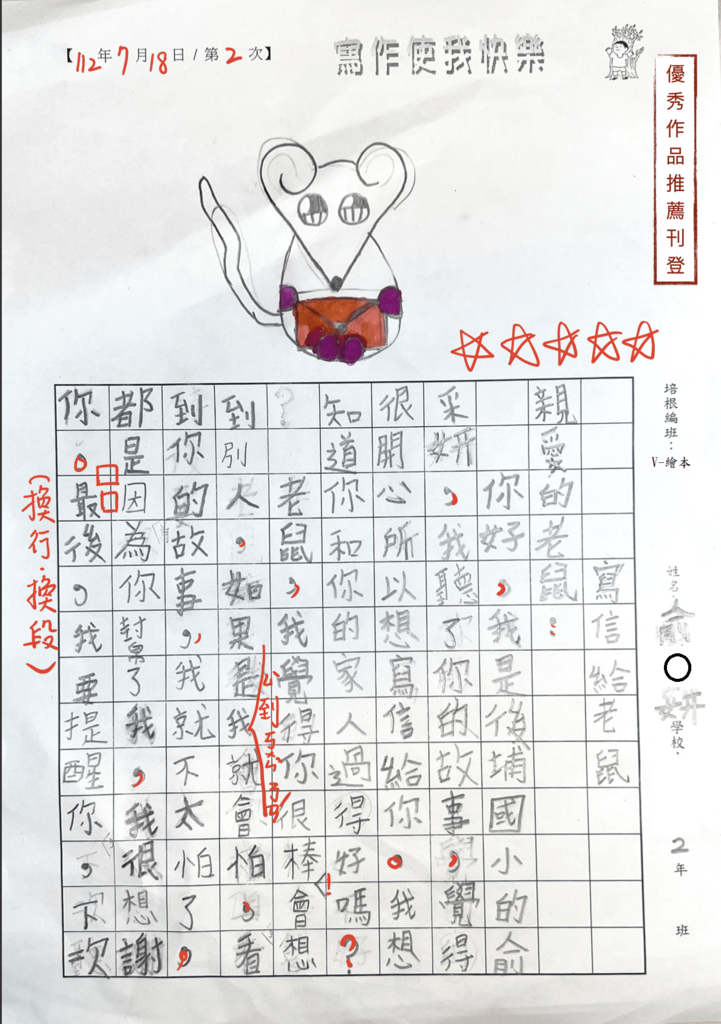 【112年7月18日/第2次】
寫作使我快樂
優秀作品推薦刊登
培根編班：V-繪本
姓名：俞○妍
學校：
2年 班
寫信給老鼠
親愛的老鼠：
你好，我是後埔國小的俞
采妍，我聽了你的故事，覺得
很開心所以想寫信給你。我想
知道你和你的家人過得好嗎？
老鼠，我覺得你很棒！會想
到別人，如果是我就會怕，看
到你的故事，我就不太怕了。
都是因為你幫了我，我很想謝
你。最後，我要提醒你，下次
（換行.換段）